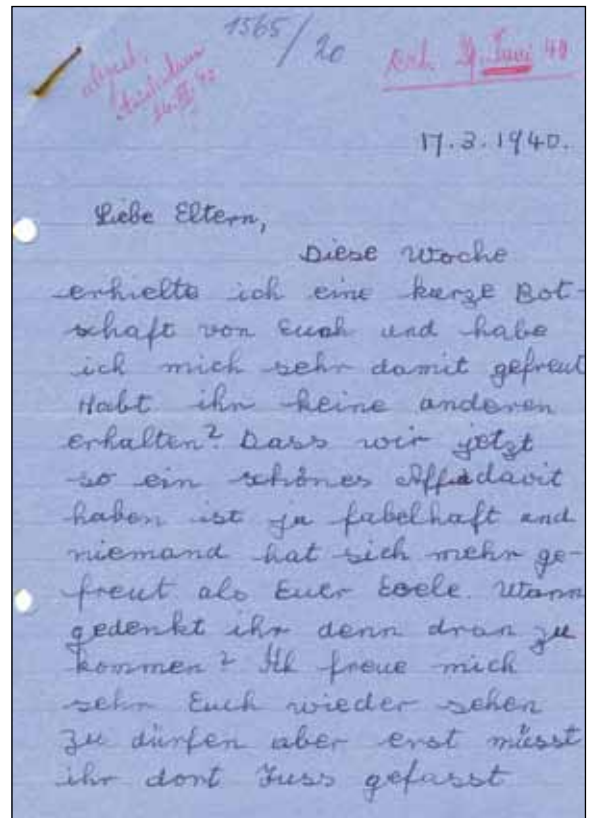 1565/20
erh. 9. Juni 40
17.3.1940.
Liebe Eltern,
Diese Woche
erhielte ich eine kurze Bot-
schaft von Euch und habe
ich mich sehr damit gefreut
Habt ihr keine anderen
erhalten? Dass wir jetzt
so ein schönes Affidavit
haben ist ja fabelhaft und
niemand hat sich mehr ge-
freut als Euer Wann
gedenkt ihr denn dran zu
kommen? Ich freue mich
sehr Euch wieder sehen
zu dürfen aber erst müsst
ihr dort Fuss gefasst